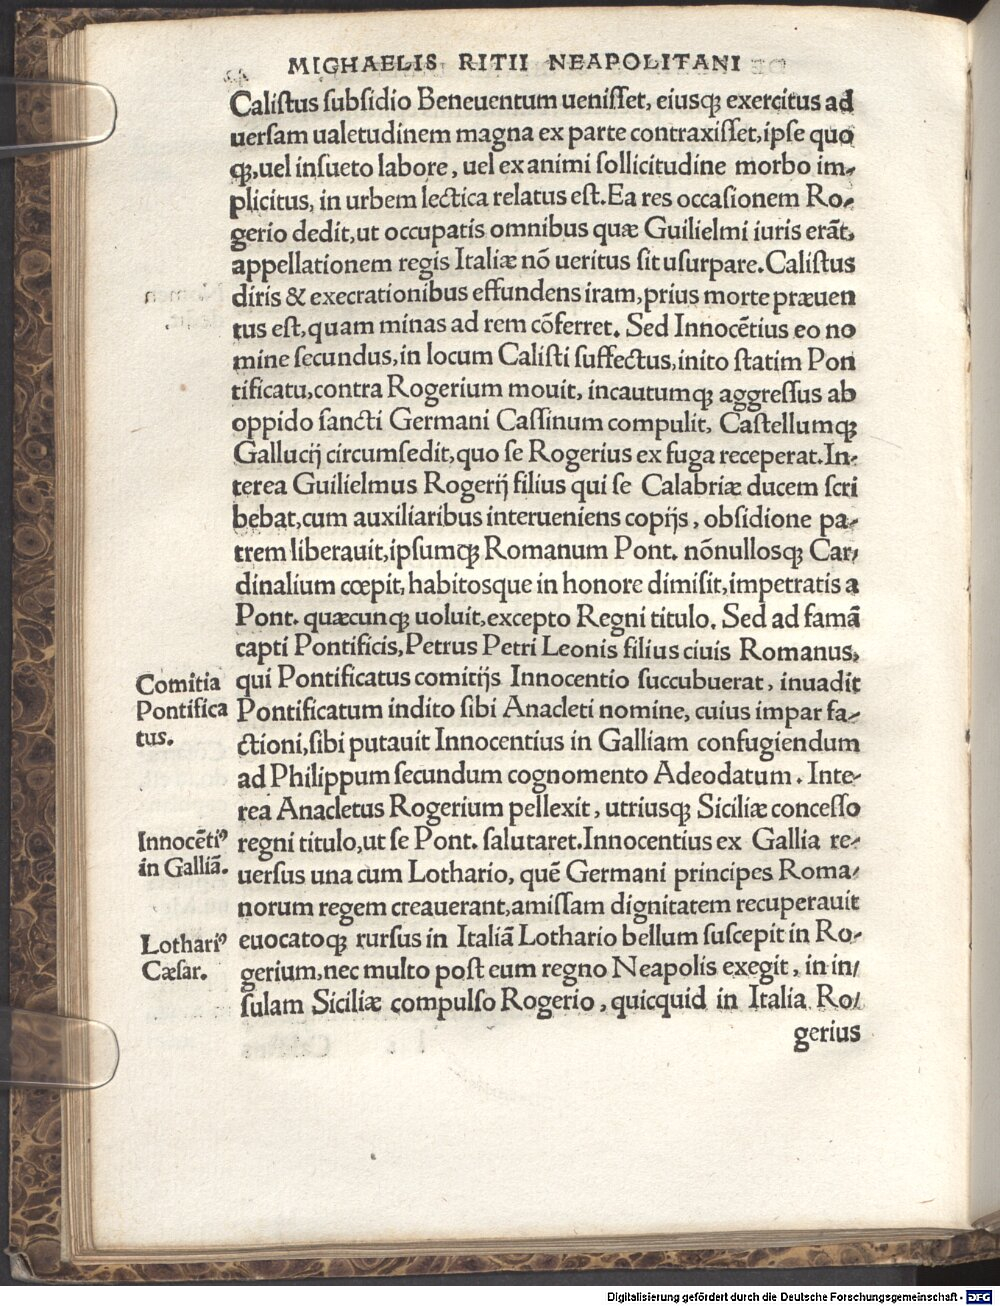 MICHAELIS RITII NEAPOLITANI
Caliſtus ſubſidio Beneuentum ueniſſet, eiusq́ꝫ exercitus ad
uerſam ualetudinem magna ex parte contraxiſſet, ipſe quo
qꝫ, uel inſueto labore, uel ex animi ſollicitudine morbo im-
plicitus, in urbem lectica relatus eſt. Ea res occaſionem Ro-
gerio dedit, ut occupatis omnibus quæ Guilielmi iuris erãt,
appellationem regis Italiæ nõ ueritus ſit uſurpare. Caliſtus
diris & execrationibus effundens iram, prius morte præuen
tus eſt, quam minas ad rem cõferret. Sed Innocẽtius eo no
mine ſecundus, in locum Caliſti ſuffectus, inito ſtatim Pon
tificatu, contra Rogerium mouit, incautumqꝫ aggreſſus ab
oppido ſancti Germani Caſſinum compulit, Caſtellumqꝫ
Gallucij circumſedit, quo ſe Rogerius ex fuga receperat. In-
terea Guilielmus Rogerij filius qui ſe Calabriæ ducem ſcri
bebat, cum auxiliaribus interueniens copijs, obſidione pa-
trem liberauit, ipſumqꝫ Romanum Pont. nõnullosqꝫ Car-
dinalium cœpit, habitosque in honore dimiſit, impetratis a
Pont. quæcunqꝫ uoluit, excepto Regni titulo. Sed ad famã
capti Pontificis, Petrus Petri Leonis filius ciuis Romanus,
qui Pontificatus comitijs Innocentio ſuccubuerat, inuadit
Pontificatum indito ſibi Anacleti nomine, cuius impar fa-
ctioni, ſibi putauit Innocentius in Galliam confugiendum
ad Philippum ſecundum cognomento Adeodatum. Inte-
rea Anacletus Rogerium pellexit, utriusqꝫ Siciliæ conceſſo
regni titulo, ut ſe Pont. ſalutaret. Innocentius ex Gallia re-
uerſus una cum Lothario, quẽ Germani principes Roma-
norum regem creauerant, amiſſam dignitatem recuperauit
euocatoqꝫ rurſus in Italiã Lothario bellum ſuſcepit in Ro-
gerium, nec multo poſt eum regno Neapolis exegit, in in-
ſulam Siciliæ compulſo Rogerio, quicquid in Italia Ro-
gerius
Comitia
Pontifica
tus.
Innocẽtiꝰ
in Galliã.
Lothariꝰ
Cæſar.
Digitalisierung gefördert durch die Deutsche Forschungsgemeinschaft - DFG